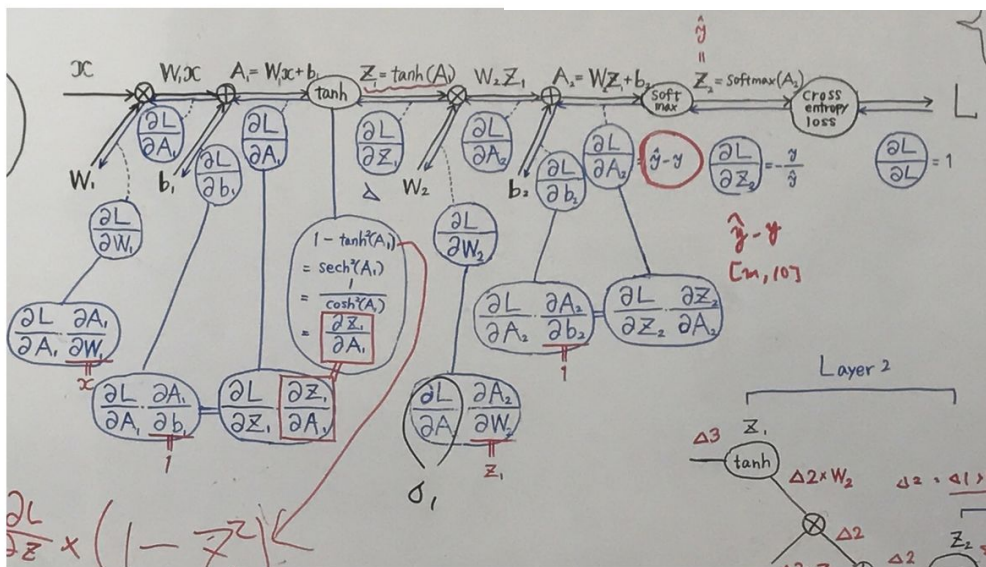 ŷ
||
x
W₁x
A₁ = W₁x + b₁
tanh
Z₁ = tanh(A₁)
W₂Z₁
A₂ = WZ₁ + b₂
Soft max
Z₂ = softmax(A₂)
Cross entropy loss
L
W₁
∂L/∂A₁
b₁
∂L/∂b₁
∂L/∂A₁
∂L/∂Z₁
Δ
W₂
∂L/∂A₂
b₂
∂L/∂b₂
∂L/∂A₂ = ŷ - y
∂L/∂Z₂ = - y/ŷ
∂L/∂L = 1
∂L/∂W₁
∂L/∂W₂
ŷ - y
[m, 10]
1 - tanh²(A₁)
= sech²(A₁)
= 1/cosh²(A₁)
= ∂Z₁/∂A₁
∂L/∂A₁ ∂A₁/∂W₁
x
∂L/∂A₂ ∂A₂/∂b₂ = ∂L/∂Z₂ ∂Z₂/∂A₂
1
∂L/∂A₁ ∂A₁/∂b₁ = ∂L/∂Z₁ ∂Z₁/∂A₁
1
∂L/∂A ∂A₂/∂W₂
Z₁
σ₁
∂L/∂Z × (1 - Z²)
Layer 2
Z₁
Δ3
tanh
Δ2×W₂
Δ2 = Δ1
Δ2
Z₂
Δ2